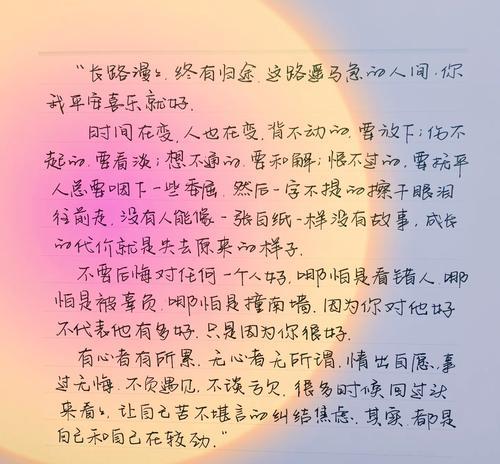 “长路漫々.终有归途.这路遥马急的人间.你
我平安喜乐就好.
时间在变,人也在变.背不动的.要放下;伤不
起的.要看淡;想不通的.要和解;恨不过的,要抚平
人总要咽下一些委屈.然后一字不提的擦干眼泪
往前走,没有人能像一张白纸一样没有故事,成长
的代价就是失去原来的样子.
不要后悔对任何一个人好.哪怕是看错人.哪
怕是被辜负.哪怕是撞南墙.因为你对他好
不代表他有多好.只是因为你很好.
有心者有所累.无心者无所谓.情出自愿.事
过无悔.不负遇见.不谈亏欠.很多时候回过头
来看々.让自己苦不堪言的纠结焦虑.其实.都是
自己和自己在较劲.”